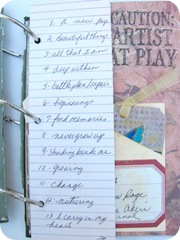 CAUTION:
ARTIST
AT PLAY
1. a new page
2. beautiful things
3. all that I am
4. deep within
5. battleplan/repair
6.
7. fond memories
8. never grow up
9. standing beside me
10. growing
11. change
12. nurturing
13. I carry in my
heart
Page